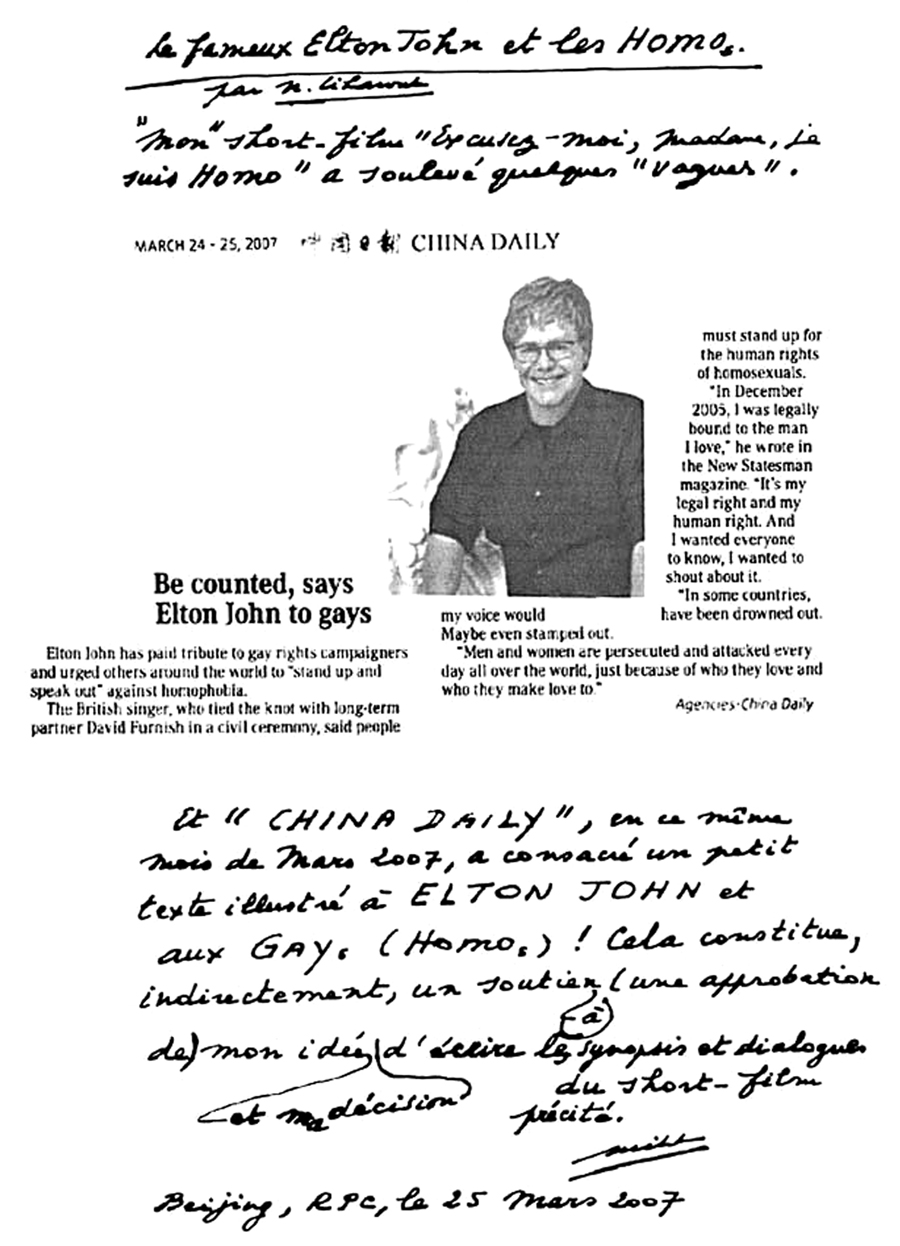 Le fameux Elton John et les Homos.
par N.
"Mon" short-film "Excusez-moi, madame, je
suis Homo" a soulevé quelques "vagues".
MARCH 24 - 25, 2007 中国日报 CHINA DAILY
Be counted, says
Elton John to gays
Elton John has paid tribute to gay rights campaigners
and urged others around the world to "stand up and
speak out" against homophobia.
The British singer, who tied the knot with long-term
partner David Furnish in a civil ceremony, said people
must stand up for
the human rights
of homosexuals.
"In December
2005, I was legally
bound to the man
I love," he wrote in
the New Statesman
magazine. "It's my
legal right and my
human right. And
I wanted everyone
to know, I wanted to
shout about it.
"In some countries,
my voice would
have been drowned out.
Maybe even stamped out.
"Men and women are persecuted and attacked every
day all over the world, just because of who they love and
who they make love to."
Agencies-China Daily
Et "CHINA DAILY", en ce même
mois de Mars 2007, a consacré un petit
texte illustré à ELTON JOHN et
aux GAYs (Homos) ! Cela constitue,
indirectement, un soutien (une approbation
-à
de) mon idée d'écrire les synopsis et dialogues
et ma décision
du short-film
précité.
Beijing, RPC, le 25 Mars 2007